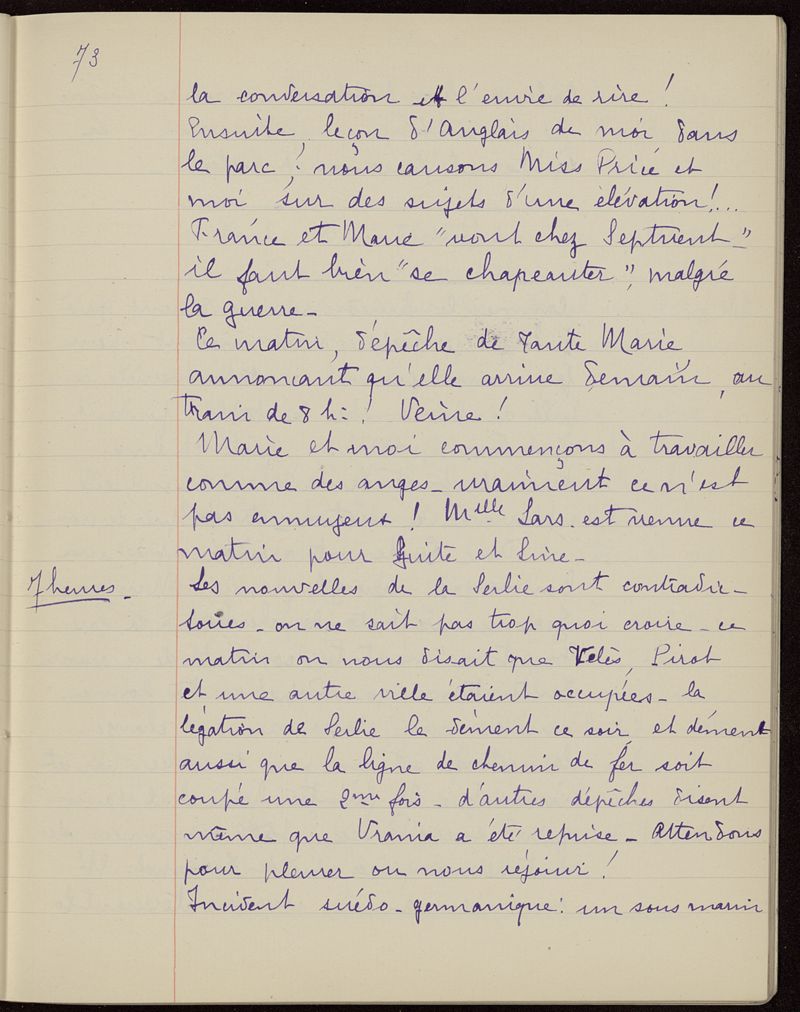 73
la conversation et l'envie de rire !
Ensuite, leçon d'Anglais de moi dans
le parc ! nous causons Miss Price et
moi sur des sujets d'une élévation !...
France et Marie "vont chez Septvent"
il faut bien "se chapeauter", malgré
la guerre -
Ce matin, dépêche de Tante Marie
annonçant qu'elle arrive demain, au
train de 8 h : ! Veine !
Marie et moi commençons à travailler
comme des anges - vraiment ce n'est
pas ennuyeux ! Melle Sars. est venue ce
matin pour Guite et Line -
7 heures - Les nouvelles de la Serbie sont contradic-
toires - on ne sait pas trop quoi croire - ce
matin on nous disait que Velès, Pirot
et une autre ville étaient occupées - la
légation de Serbie le dément ce soir et dément
aussi que la ligne de chemin de fer soit
coupé une 2me fois - d'autres dépêches disent
même que Vrania a été reprise - Attendons
pour pleurer ou nous réjouir !
Incident suédo-germanique : un sous marin